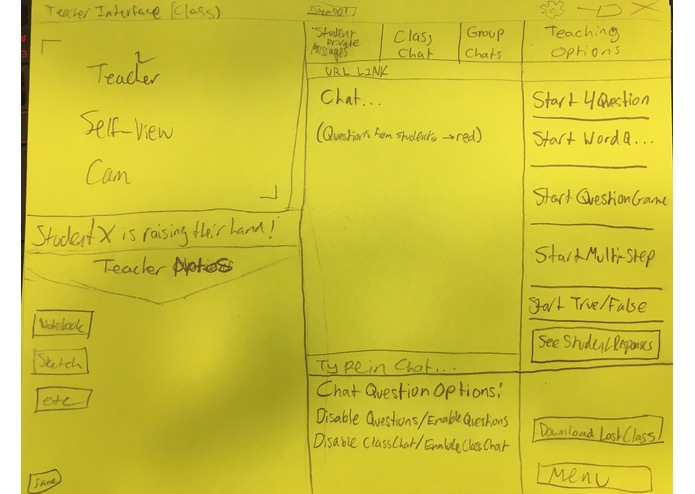 Teacher Interface (Class)
Teacher
Self-View
Cam
Student X is raising their hand!
Teacher Notes
Notebook
Sketch
etc
Save
Student
Private
Messages
Class
Chat
Group
Chats
URL LINK
Chat...
(Questions from students → red)
Type in Chat...
Chat Question Options:
Disable Questions/Enable Questions
Disable ClassChat/Enable ClassChat
Teaching
Options
Start 4Question
Start Word Q...
Start QuestionGame
Start Multi-Step
Start True/False
See Student Responses
Download Last Class
Menu